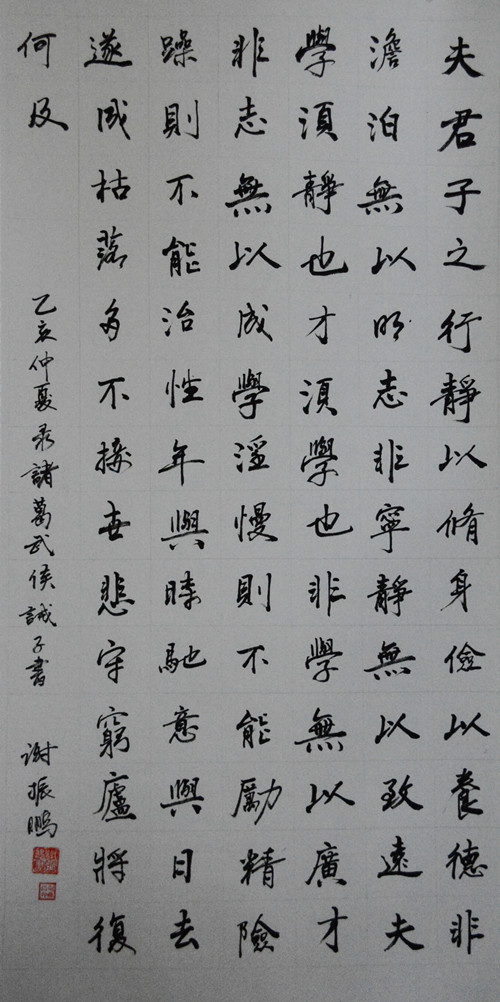 夫君子之行靜以脩身儉以養德非
澹泊無以明志非寧靜無以致遠夫
學須靜也才須學也非學無以廣才
非志無以成學淫慢則不能勵精險
躁則不能治性年與時馳意與日去
遂成枯落多不接世悲守窮廬將復
何及
乙亥仲夏录諸葛武侯誡子書
谢振鹏